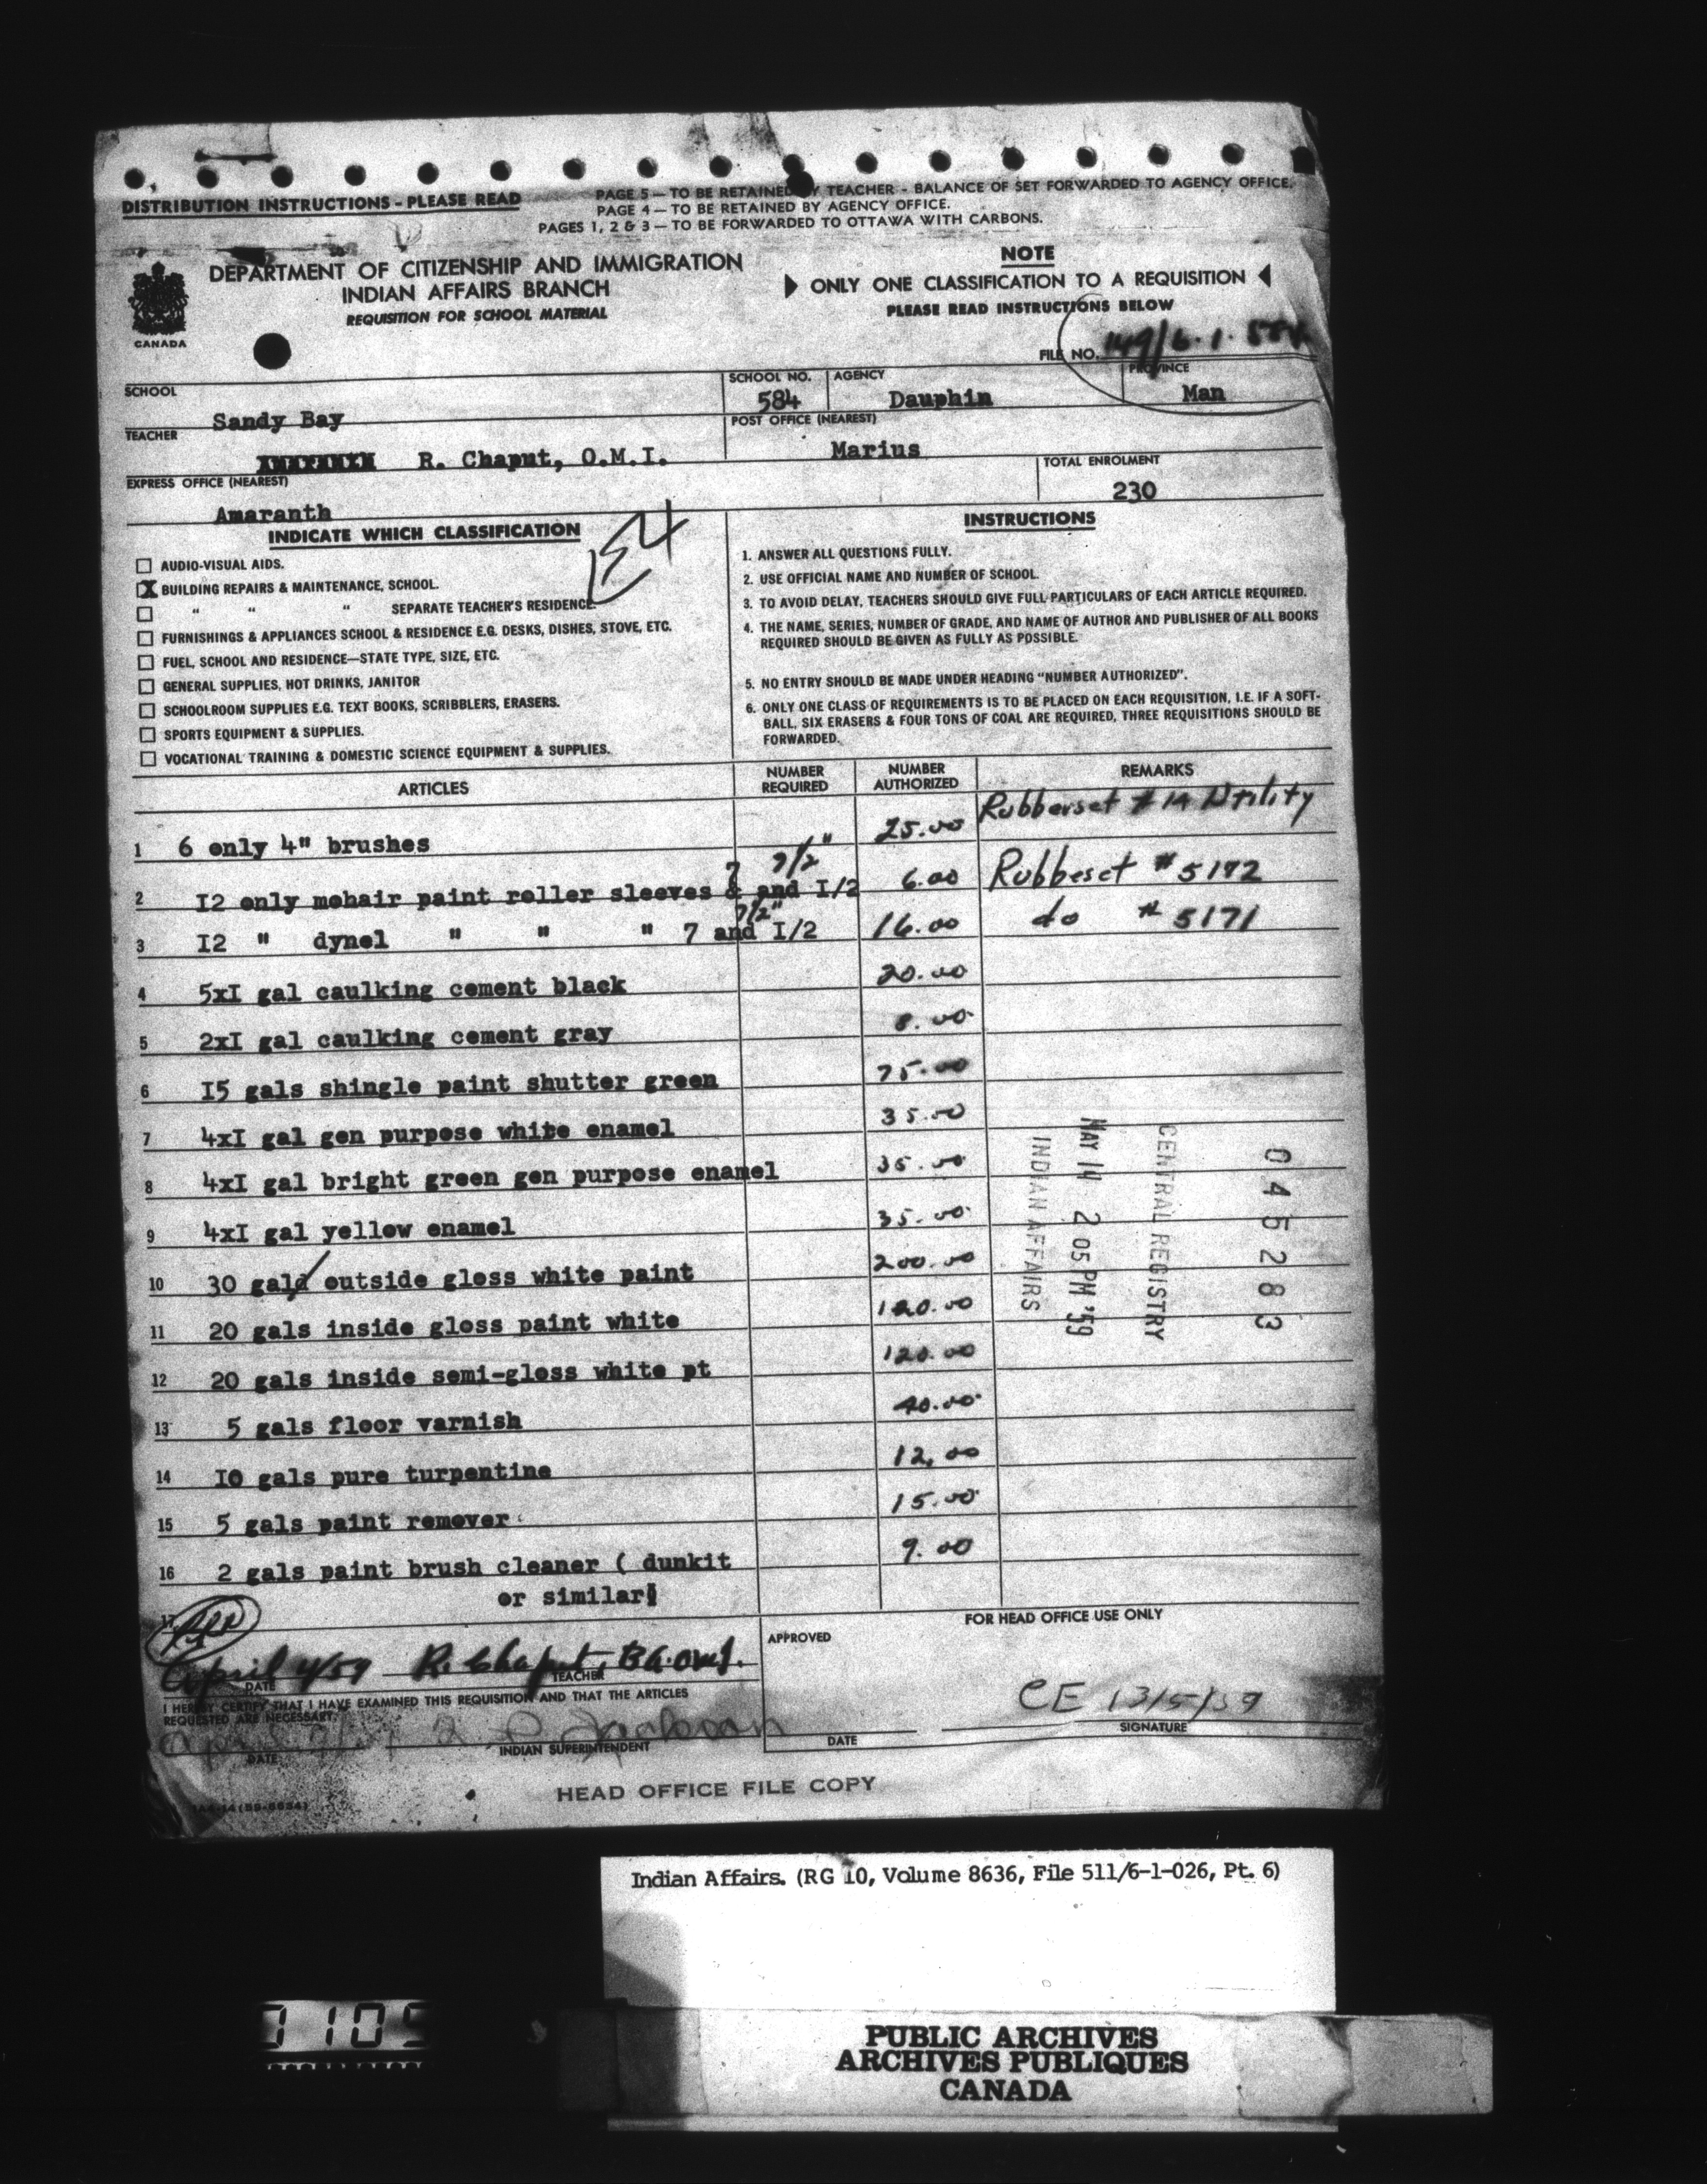 DISTRIBUTION INSTRUCTIONS - PLEASE READ
PAGE 5 — TO BE RETAINED BY TEACHER - BALANCE OF SET FORWARDED TO AGENCY OFFICE.
PAGE 4 — TO BE RETAINED BY AGENCY OFFICE.
PAGES 1, 2 & 3 — TO BE FORWARDED TO OTTAWA WITH CARBONS.
DEPARTMENT OF CITIZENSHIP AND IMMIGRATION
INDIAN AFFAIRS BRANCH
REQUISITION FOR SCHOOL MATERIAL
CANADA
NOTE
ONLY ONE CLASSIFICATION TO A REQUISITION
PLEASE READ INSTRUCTIONS BELOW
FILE NO. 149/6.1.584
SCHOOL Sandy Bay
SCHOOL NO. 584
AGENCY Dauphin
PROVINCE Man
TEACHER R. Chaput, O.M.I.
POST OFFICE (NEAREST) Marius
EXPRESS OFFICE (NEAREST) Amaranth
TOTAL ENROLMENT 230
E4
INDICATE WHICH CLASSIFICATION
AUDIO-VISUAL AIDS.
X BUILDING REPAIRS & MAINTENANCE, SCHOOL.
" " " SEPARATE TEACHER'S RESIDENCE.
FURNISHINGS & APPLIANCES SCHOOL & RESIDENCE E.G. DESKS, DISHES, STOVE, ETC.
FUEL, SCHOOL AND RESIDENCE—STATE TYPE, SIZE, ETC.
GENERAL SUPPLIES, HOT DRINKS, JANITOR
SCHOOLROOM SUPPLIES E.G. TEXT BOOKS, SCRIBBLERS, ERASERS.
SPORTS EQUIPMENT & SUPPLIES.
VOCATIONAL TRAINING & DOMESTIC SCIENCE EQUIPMENT & SUPPLIES.
INSTRUCTIONS
1. ANSWER ALL QUESTIONS FULLY.
2. USE OFFICIAL NAME AND NUMBER OF SCHOOL.
3. TO AVOID DELAY, TEACHERS SHOULD GIVE FULL PARTICULARS OF EACH ARTICLE REQUIRED.
4. THE NAME, SERIES, NUMBER OF GRADE, AND NAME OF AUTHOR AND PUBLISHER OF ALL BOOKS
REQUIRED SHOULD BE GIVEN AS FULLY AS POSSIBLE.
5. NO ENTRY SHOULD BE MADE UNDER HEADING "NUMBER AUTHORIZED".
6. ONLY ONE CLASS OF REQUIREMENTS IS TO BE PLACED ON EACH REQUISITION, I.E. IF A SOFT-
BALL, SIX ERASERS & FOUR TONS OF COAL ARE REQUIRED, THREE REQUISITIONS SHOULD BE
FORWARDED.
ARTICLES NUMBER REQUIRED NUMBER AUTHORIZED REMARKS
1 6 only 4" brushes 25.00 Rubberset # 14 Utility
7 7½"
2 I2 only mohair paint roller sleeves & and I/2 6.00 Rubbeset # 5172
7½"
3 I2 " dynel " " " 7 and I/2 16.00 do # 5171
4 5xI gal caulking cement black 20.00
5 2xI gal caulking cement gray 8.00
6 I5 gals shingle paint shutter green 75.00
7 4xI gal gen purpose white enamel 35.00
8 4xI gal bright green gen purpose enamel 35.00
9 4xI gal yellow enamel 35.00
10 30 gald outside gloss white paint 200.00
11 20 gals inside gloss paint white 120.00
12 20 gals inside semi-gloss white pt 120.00
13 5 gals floor varnish 40.00
14 I0 gals pure turpentine 12.00
15 5 gals paint remover 15.00
16 2 gals paint brush cleaner ( dunkit 9.00
or similar)
17
045283
CENTRAL REGISTRY
MAY 14 2 05 PM '59
INDIAN AFFAIRS
April 4/59 R. Chaput, B.A. O.M.I.
DATE TEACHER
I HEREBY CERTIFY THAT I HAVE EXAMINED THIS REQUISITION AND THAT THE ARTICLES
REQUESTED ARE NECESSARY.
DATE INDIAN SUPERINTENDENT
FOR HEAD OFFICE USE ONLY
APPROVED
CE 13/5/59
DATE SIGNATURE
HEAD OFFICE FILE COPY
Indian Affairs. (RG 10, Volume 8636, File 511/6-1-026, Pt. 6)
PUBLIC ARCHIVES
ARCHIVES PUBLIQUES
CANADA